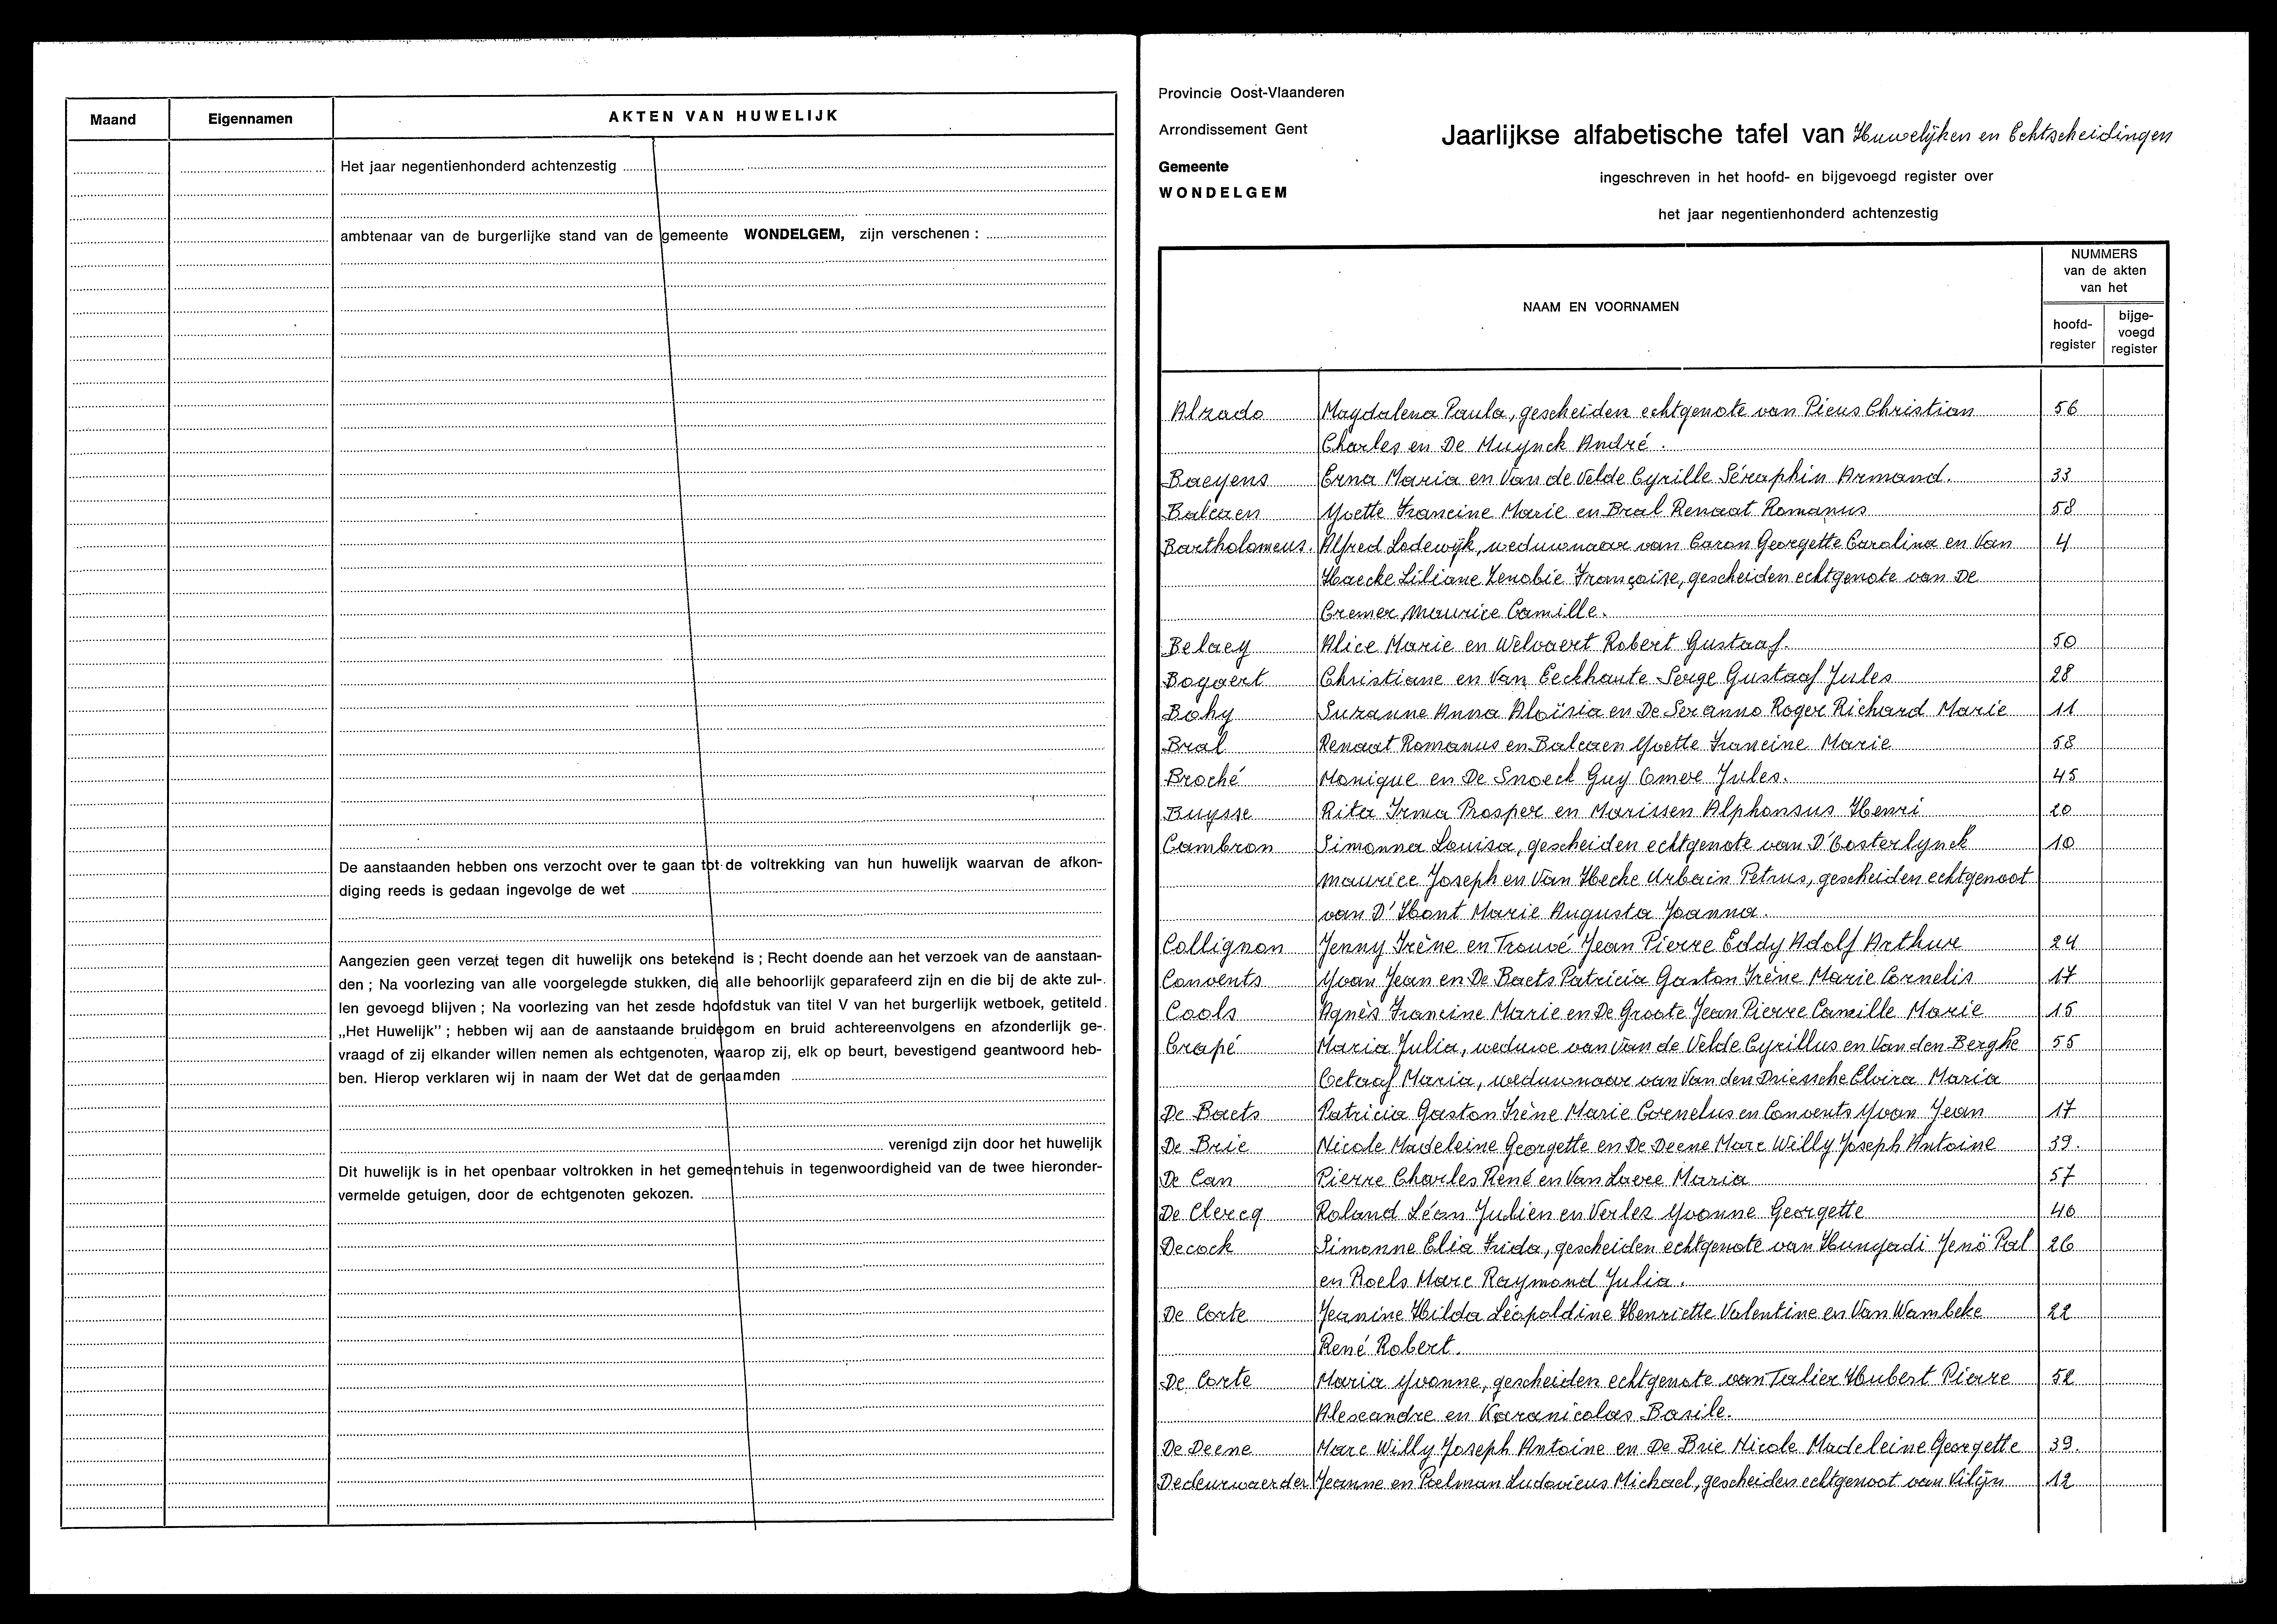 Maand Eigennamen AKTEN VAN HUWELIJK
Het jaar negentienhonderd achtenzestig
ambtenaar van de burgerlijke stand van de gemeente WONDELGEM, zijn verschenen :
De aanstaanden hebben ons verzocht over te gaan tot de voltrekking van hun huwelijk waarvan de afkon-
diging reeds is gedaan ingevolge de wet
Aangezien geen verzet tegen dit huwelijk ons betekend is ; Recht doende aan het verzoek van de aanstaan-
den ; Na voorlezing van alle voorgelegde stukken, die alle behoorlijk geparafeerd zijn en die bij de akte zul-
len gevoegd blijven ; Na voorlezing van het zesde hoofdstuk van titel V van het burgerlijk wetboek, getiteld
„Het Huwelijk” ; hebben wij aan de aanstaande bruidegom en bruid achtereenvolgens en afzonderlijk ge-
vraagd of zij elkander willen nemen als echtgenoten, waarop zij, elk op beurt, bevestigend geantwoord heb-
ben. Hierop verklaren wij in naam der Wet dat de genaamden
verenigd zijn door het huwelijk
Dit huwelijk is in het openbaar voltrokken in het gemeentehuis in tegenwoordigheid van de twee hieronder-
vermelde getuigen, door de echtgenoten gekozen.
Provincie Oost-Vlaanderen
Arrondissement Gent
Gemeente
WONDELGEM
Jaarlijkse alfabetische tafel van Huwelijken en Echtscheidingen
ingeschreven in het hoofd- en bijgevoegd register over
het jaar negentienhonderd achtenzestig
NAAM EN VOORNAMEN
NUMMERS
van de akten
van het
hoofd-
register
bijge-
voegd
register
Alzado Magdalena Paula, gescheiden echtgenote van Picus Christian 56
Charles en De Muynck André.
Baeyens Erna Maria en Van de Velde Cyrille Séraphin Armand. 33
Balcaen Yvette Francine Marie en Bral Renaat Romanus 58
Bartholomeus. Alfred Lodewijk, weduwnaar van Caron Georgette Carolina en Van 4
Haecke Liliane Zenobie Françoise, gescheiden echtgenote van De
Cremer Maurice Camille.
Belaey Alice Marie en Welvaert Robert Gustaaf. 50
Bogaert Christiane en Van Eeckhaute Serge Gustaaf Jules 28
Bohy Suzanne Anna Aloïsia en De Seranno Roger Richard Marie 11
Bral Renaat Romanus en Balcaen Yvette Francine Marie 58
Broché Monique en De Snoeck Guy Omer Jules. 45
Buysse Rita Irma Prosper en Marissen Alphonsus Henri 20
Cambron Simonna Louisa, gescheiden echtgenote van D'Oosterlynck 10
Maurice Joseph en Van Hecke Urbain Petrus, gescheiden echtgenoot
van D'Hont Marie Augusta Joanna.
Collignon Jenny Irène en Trouvé Jean Pierre Eddy Adolf Arthur 24
Convents Yvan Jean en De Baets Patricia Gaston Irène Marie Cornelis 17
Cools Agnès Francine Marie en De Groote Jean Pierre Camille Marie 15
Crapé Maria Julia, weduwe van Van de Velde Cyrillus en Van den Berghe 55
Octaaf Maria, weduwnaar van Van den Driessche Elvira Maria
De Baets Patricia Gaston Irène Marie Cornelus en Convents Yvan Jean 17
De Brie Nicole Madeleine Georgette en De Deene Marc Willy Joseph Antoine 39.
De Can Pierre Charles René en Van Laere Maria 57
De Clercq Roland Léon Julien en Verlez Yvonne Georgette 46
Decock Simonne Elia Frida, gescheiden echtgenote van Hunyadi Jenö Pal 26
en Roels Marc Raymond Julia.
De Corte Jeanine Hilda Léopoldine Henriette Valentine en Van Wambeke 22
René Robert.
De Corte Maria Yvonne, gescheiden echtgenote van Talier Hubert Pierre 52
Alexandre en Karanicolas Basile.
De Deene Marc Willy Joseph Antoine en De Brie Nicole Madeleine Georgette 39.
Dedeurwaerder Jeanne en Poelman Ludovicus Michael, gescheiden echtgenoot van Vilijn 12